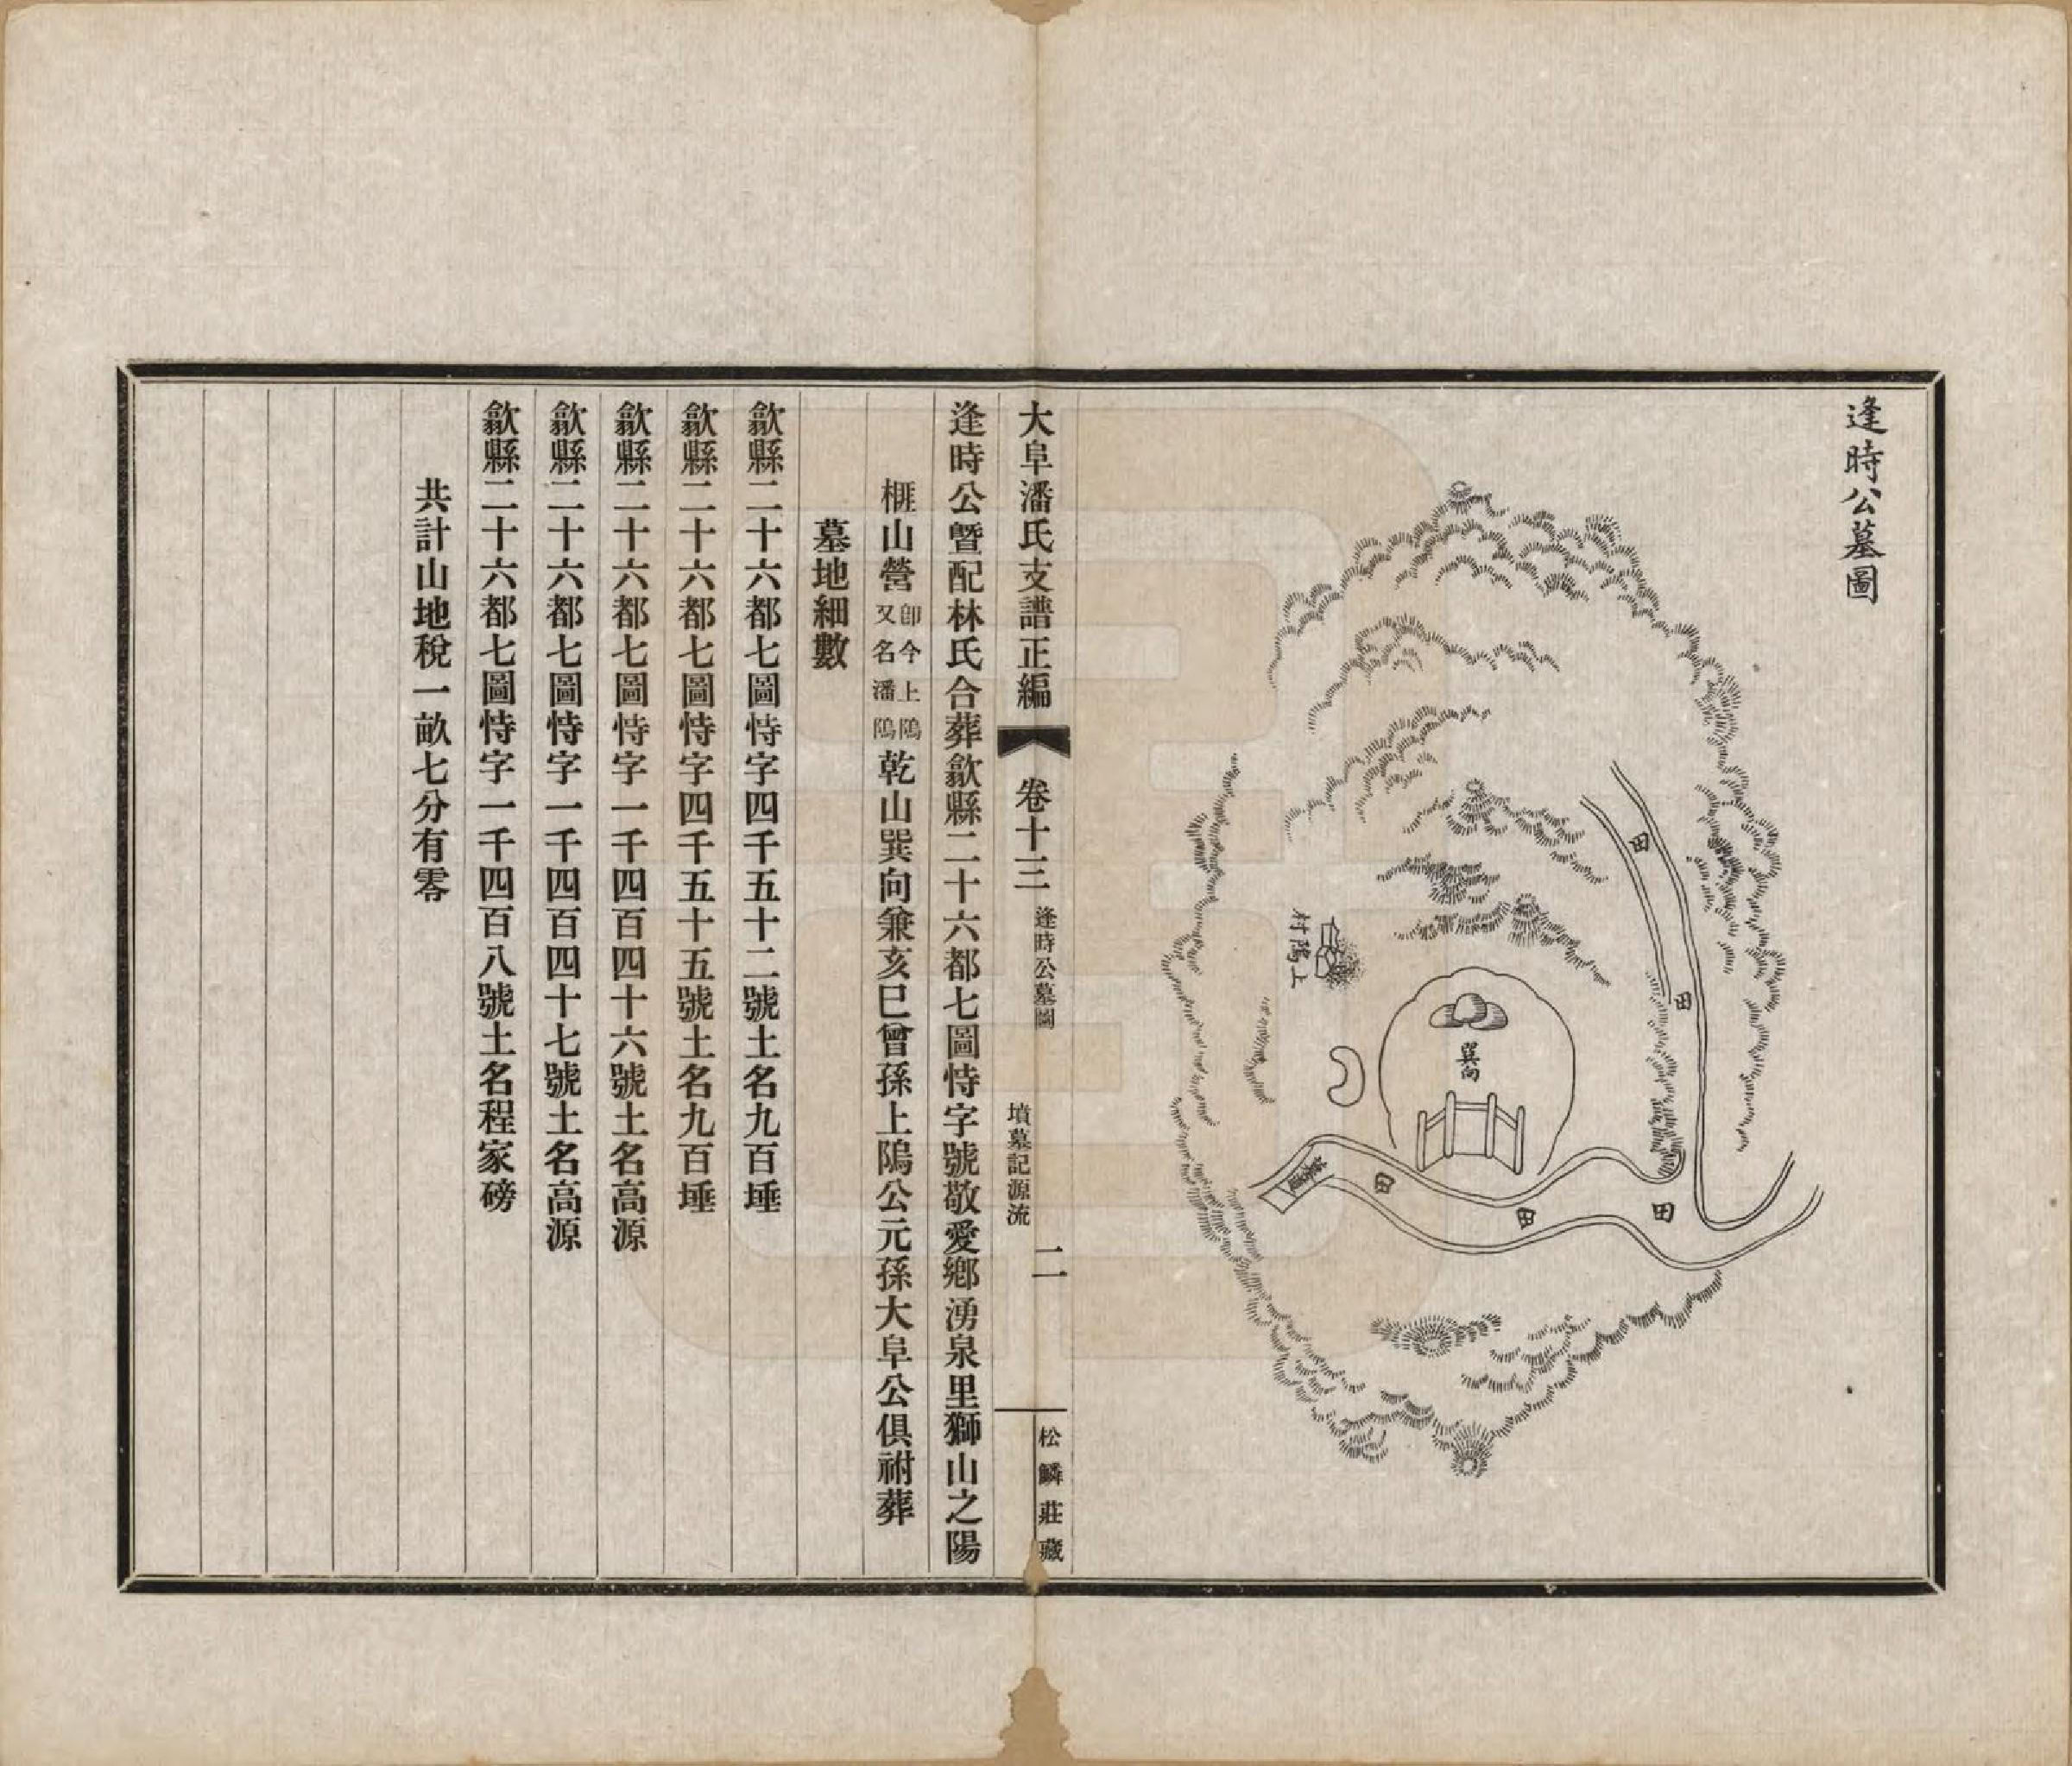 逢時公墓圖
田
田
巽向
上隖村
田
田
田
大阜潘氏支譜正編
卷十三
逢時公墓圖
墳墓記源流
二
松鱗莊藏
逢時公曁配林氏合葬歙縣二十六都七圖恃字號敬愛鄉湧泉里獅山之陽
榧山營卽今上隖又名潘隖乾山巽向兼亥巳曾孫上隖公元孫大阜公俱祔葬
墓地細數
歙縣二十六都七圖恃字四千五十二號土名九百埵
歙縣二十六都七圖恃字四千五十五號土名九百埵
歙縣二十六都七圖恃字一千四百四十六號土名高源
歙縣二十六都七圖恃字一千四百四十七號土名高源
歙縣二十六都七圖恃字一千四百八號土名程家磅
共計山地稅一畝七分有零